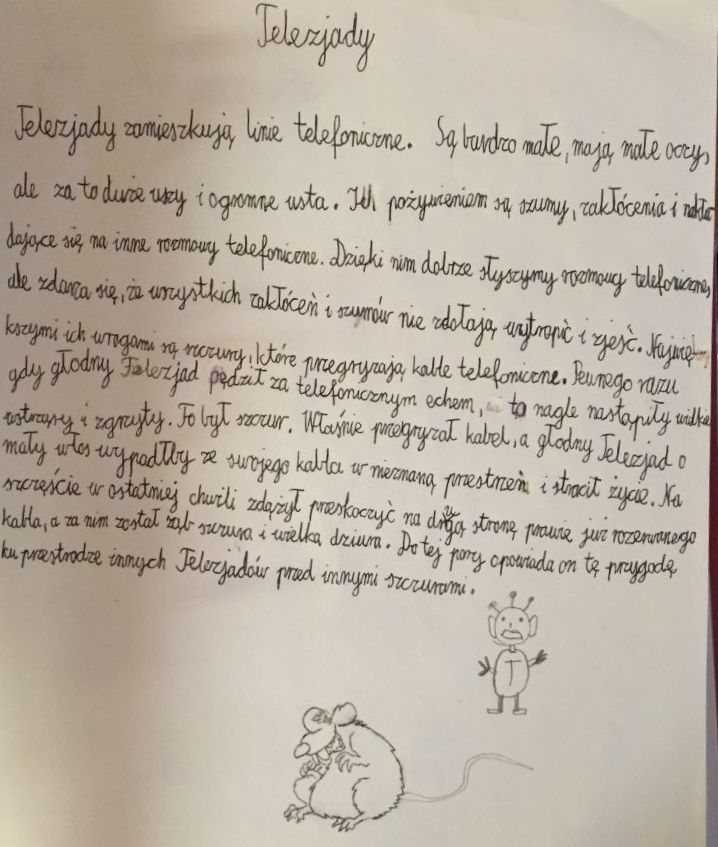 Telezjady
Telezjady zamieszkują linie telefoniczne. Są bardzo małe, mają małe oczy,
ale za to duże uszy i ogromne usta. Ich pożywieniem są szumy, zakłócenia i nakła
dające się na inne rozmowy telefoniczne. Dzięki nim dobrze słyszymy rozmowy telefoniczne,
ale zdarza się, że wszystkich zakłóceń i szumów nie zdołają wytropić i zjeść. Najwię
kszymi ich wrogami są szczury, które przegryzają kable telefoniczne. Pewnego razu
gdy głodny Telezjad pędził za telefonicznym echem, to nagle nastąpiły wielkie
wstrząsy i zgrzyty. To był szczur. Właśnie przegryzał kabel, a głodny Telezjad o
mały włos wypadłby ze swojego kabla w nieznaną przestrzeń i stracił życie. Na
szczęście w ostatniej chwili zdążył przeskoczyć na drugą stronę prawie już rozerwanego
kabla, a za nim został ząb szczura i wielka dziura. Do tej pory opowiada on tę przygodę
ku przestrodze innych Telezjadów przed innymi szczurami.
T